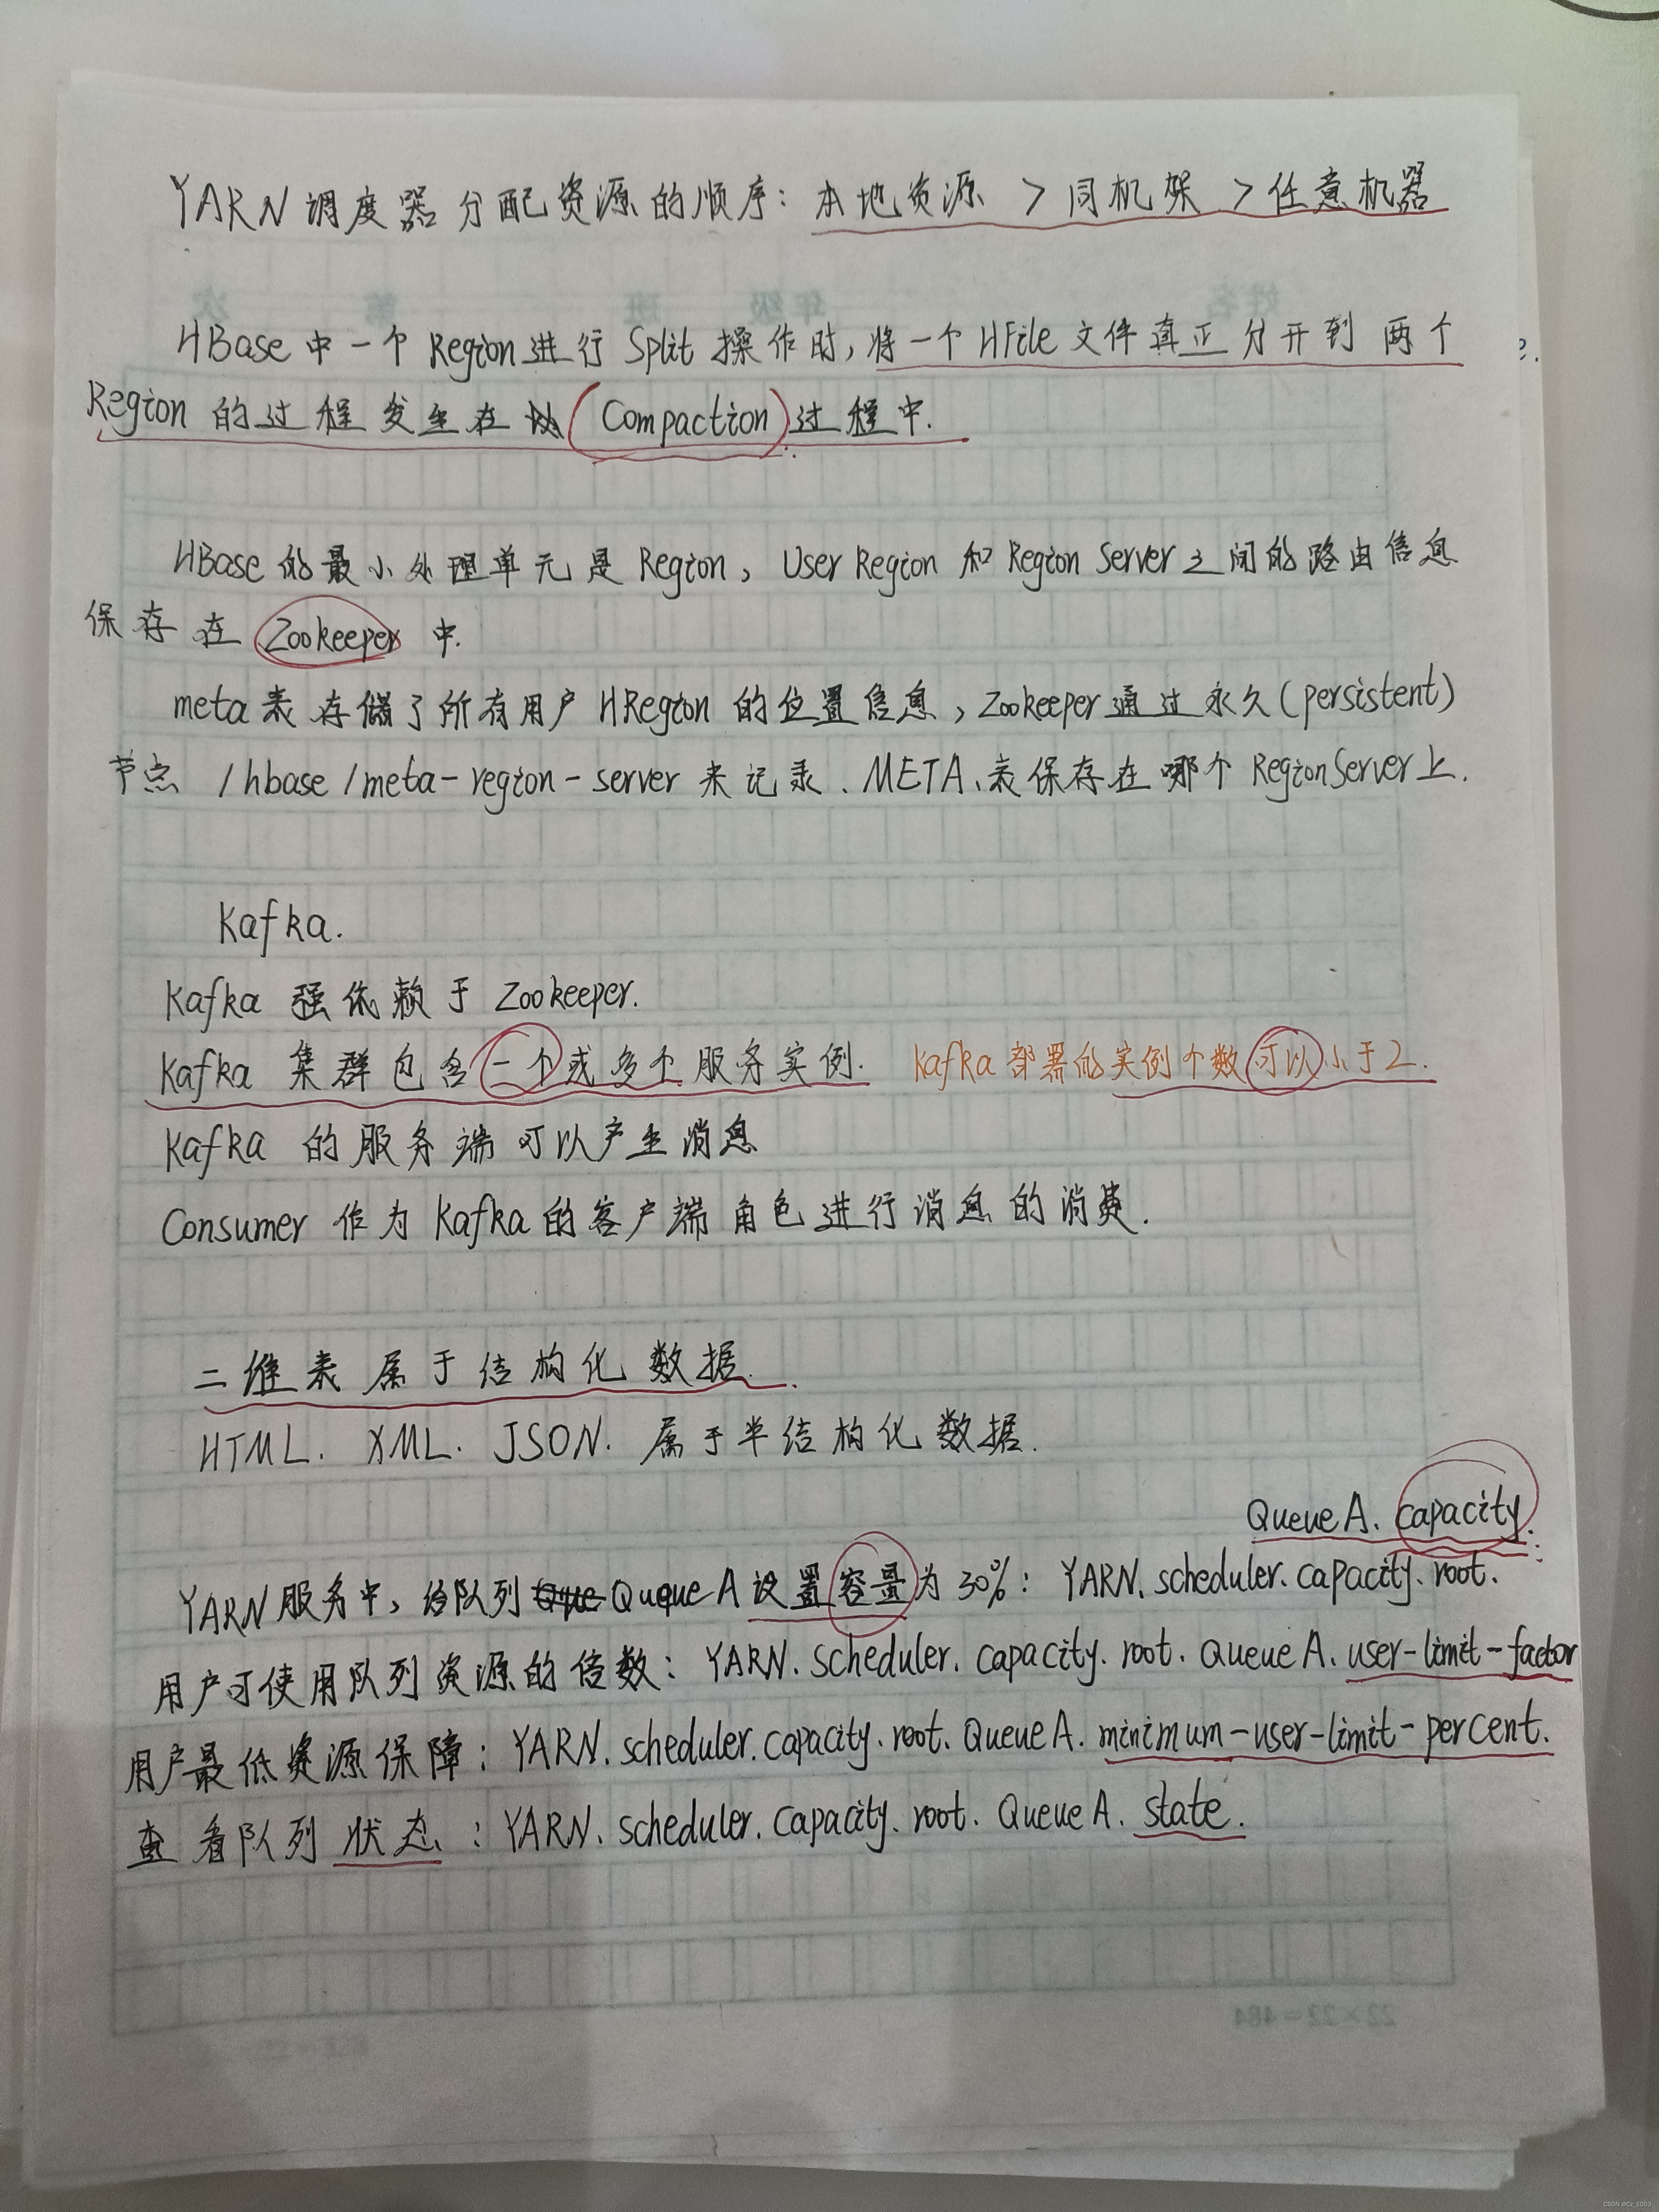 YARN 调度器分配资源的顺序：本地资源 > 同机架 > 任意机器
姓名 年级 班 第 次
HBase 中一个 Region 进行 Split 操作时，将一个 HFile 文件真正分开到两个
Region 的过程发生在 (Compaction) 过程中.
HBase 的最小处理单元是 Region，User Region 和 Region Server 之间的路由信息
保存在 Zookeeper 中.
meta 表存储了所有用户 HRegion 的位置信息，Zookeeper 通过永久(persistent)
节点 /hbase/meta-region-server 来记录.META.表保存在哪个 RegionServer 上.
Kafka.
Kafka 强依赖于 Zookeeper.
Kafka 集群包含一个或多个服务实例. Kafka 部署的实例个数可以小于2.
Kafka 的服务端可以产生消息
Consumer 作为 Kafka 的客户端角色进行消息的消费.
二维表属于结构化数据.
HTML. XML. JSON. 属于半结构化数据.
QueueA. capacity.
YARN 服务中，给队列 Que Queue A 设置容量为 30%：YARN.scheduler.capacity.root.
用户可使用队列资源的倍数：YARN.scheduler.capacity.root.QueueA.user-limit-factor
用户最低资源保障：YARN.scheduler.capacity.root.QueueA.minimum-user-limit-percent.
查看队列状态：YARN.scheduler.capacity.root.QueueA.state.
22×22=484